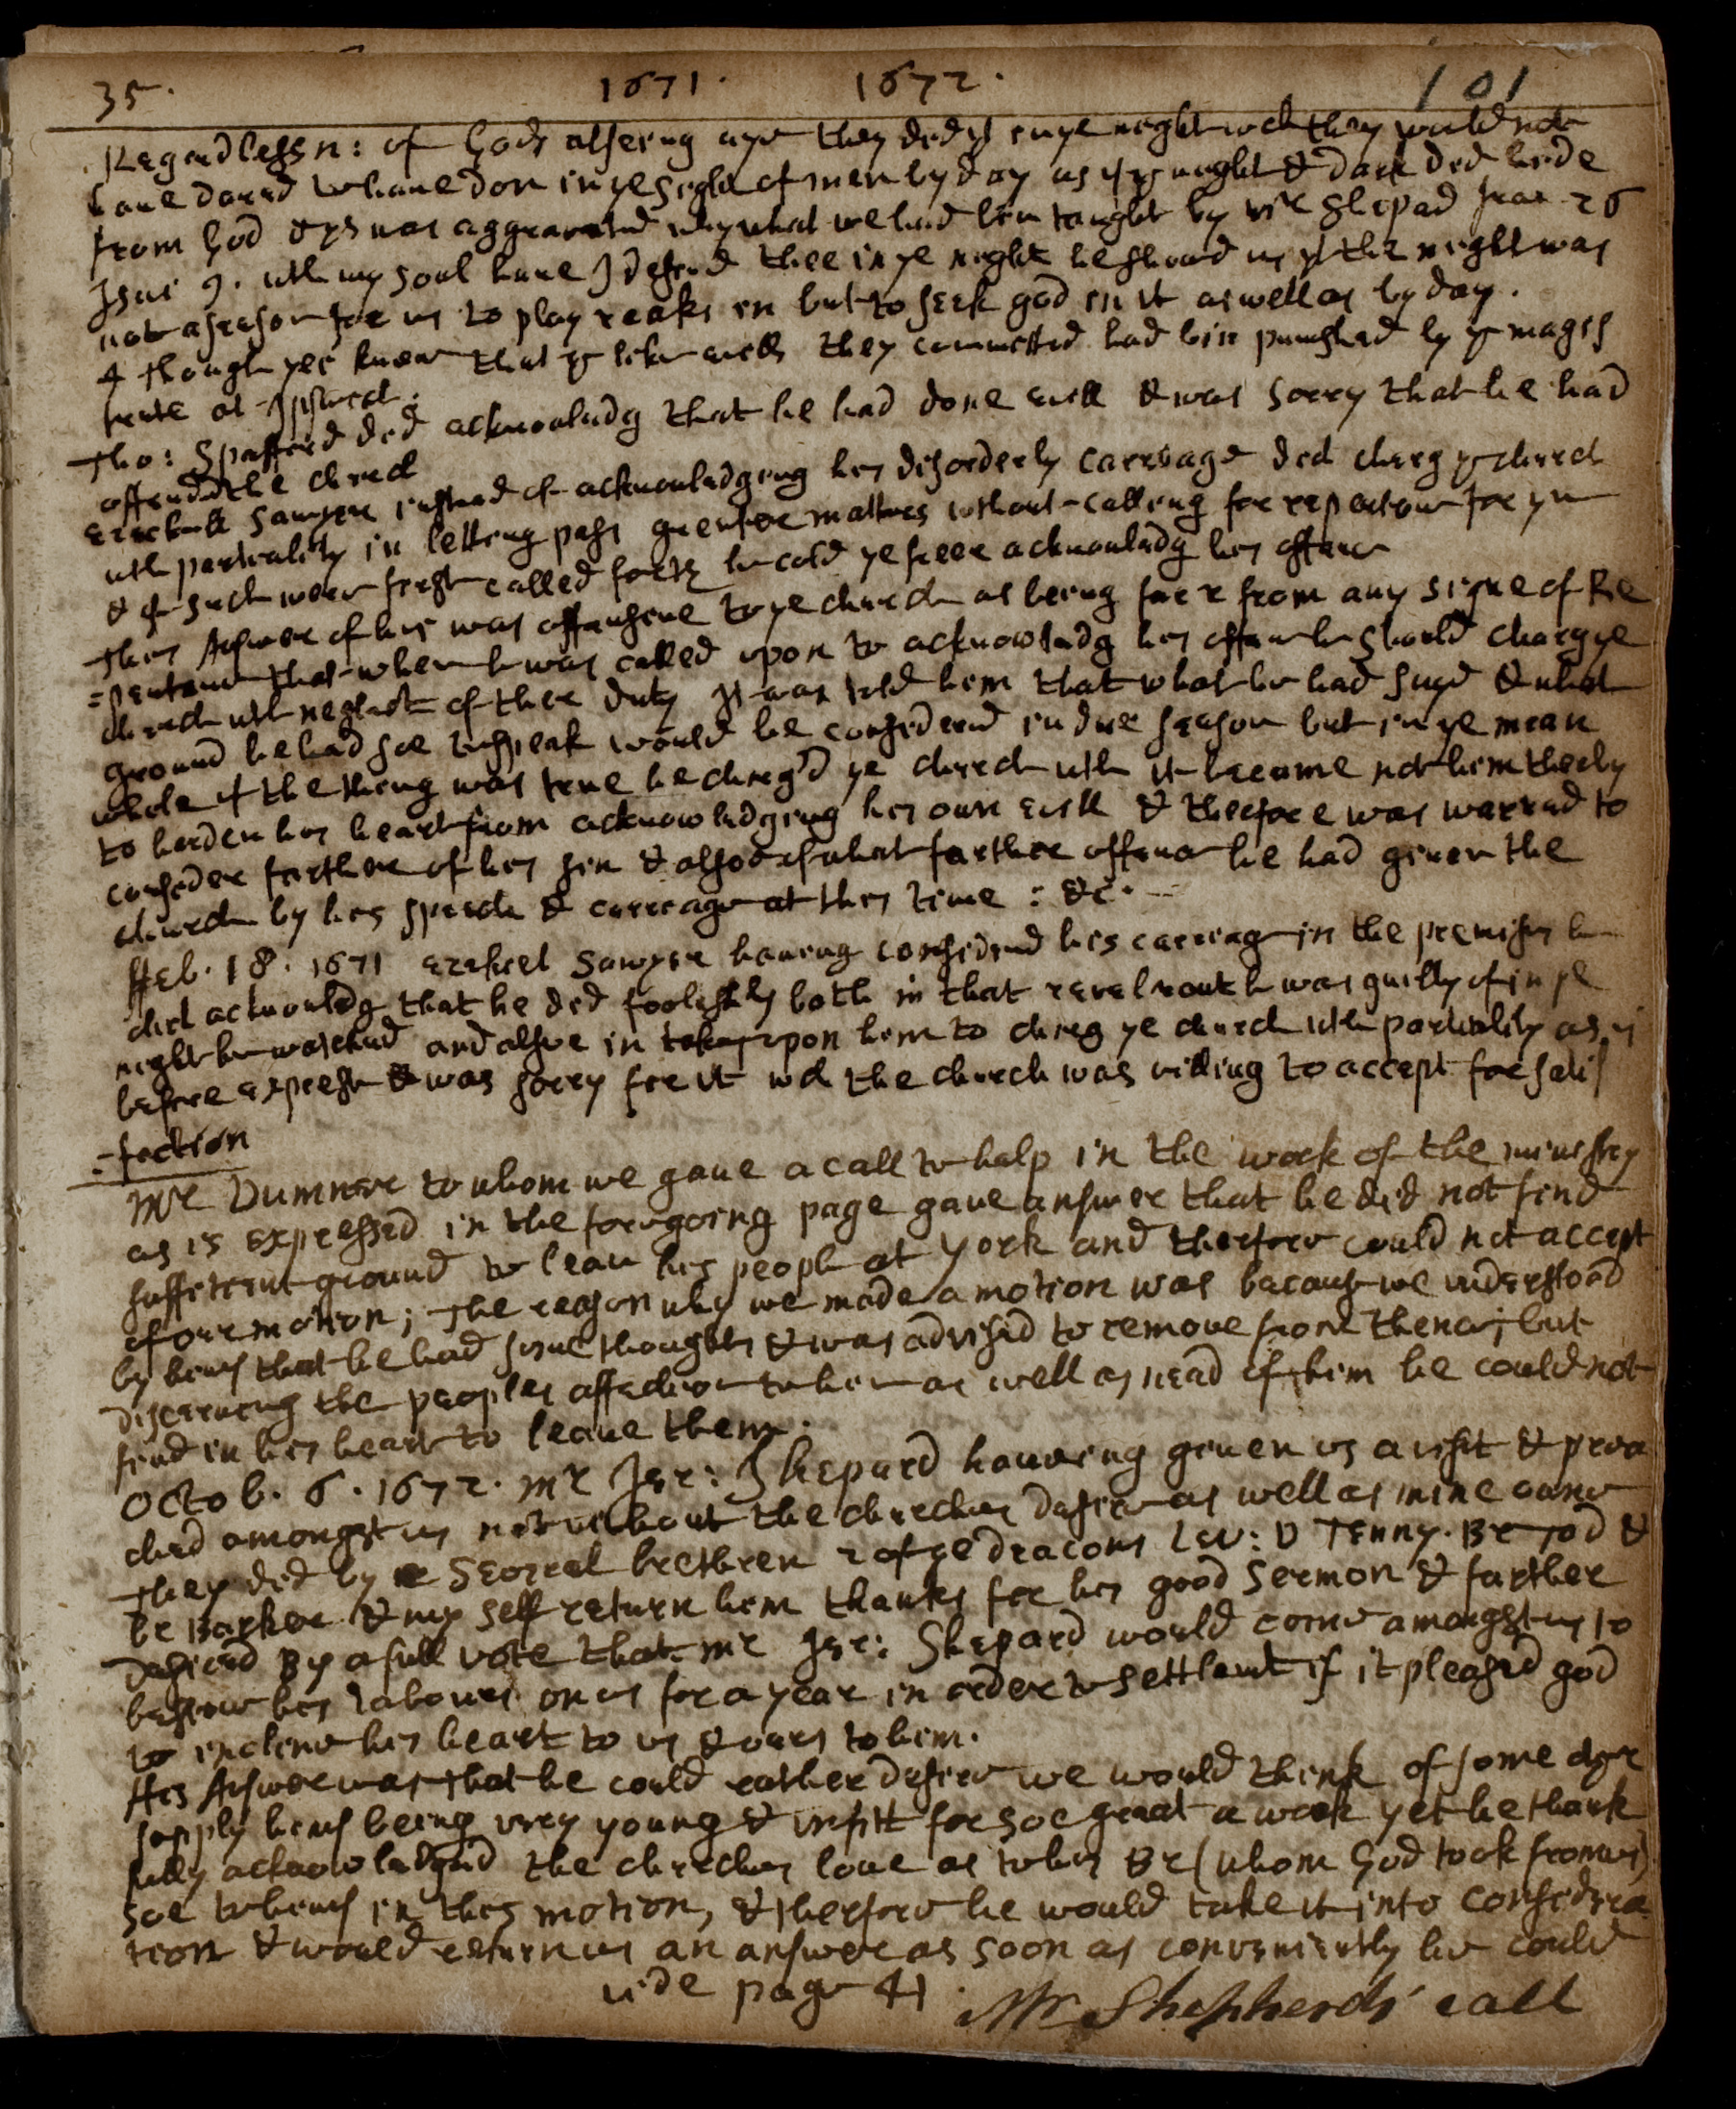 35. 1671. 1672. 101
Regardlessn: of Gods allseeing eye they did yt in ye night wch they would not
have dared to have don in ye sight of men by day as if ye night & dark did hide
from God & ys was aggravated by what we had bin taught by mr Shepad from 26
Isai 9. with my soul have I desired thee in ye night he shewed us yt the night was
not a season for us to play reaks in but to seek god in it as well as by day.
4 though yei knew that ye like evills they committed had bin punished by ye magis
trate at Ipswich.
Tho: Spafford did acknowledg that he had done evill & was sorry that he had
offended the church
Ezechiell Sawyer instead of acknowledging his disorderly carriage did charg ye church
with partiality in letting pass greater matters without calling for repentance for ym
& if such weer first called forth he could ye freer acknowledg his offence
This Answer of his was offensive to ye church as being farr from any signe of Re
=pentance that when he was called upon to acknowledg his offence he should charg ye
church with neglect of their duty It was told him that what he had sayd & what
ground he had soe to speak would be considered in due season but in ye mean
while if the thing was true he charg'd ye church with it became not him therby
to harden his heart from acknowledging his own evill & therfore was warned to
consider farther of his sin & also of what farther offence he had given the
church by his speech & carriage at this time : &c.
Feb. 18. 1671 Ezekiel Sawyer having considered his carriag in the premises he
did acknowledg that he did foolishly both in that revel rout he was guilty of in ye
night he watched and allsoe in taking upon him to charg ye church with partiality as is
before exprest & was sorry for it wch the church was willing to accept for satis
=faction
Mr Dummer to whom we gave a call to help in the work of the ministry
as is expressed in the foregoing page gave answer that he did not find
sufficient ground to leave his people at York and therfore could not accept
of our motion; The reason why we made a motion was because we understood
by himself that he had some thoughts & was advised to remove from thence; but
discerning the peoples affection to him as well as need of him he could not
find in his heart to leave them.
Octob. 6. 1672. mr Jer: Shepard having given us a visit & prea
ched amongst us not without the churches desire as well as mine owne
They did by Severall brethren 2 of ye deacons Lev: D Tenny. Br Jod &
br Barker & my self return him thanks for his good Sermon & farther
desired By a full vote that mr Jer: Shepard would come amongst us to
bestow his labours on us for a year in order to settlemt if it pleased god
to incline his heart to us & ours to him.
His Answer was that he could rather desire we would think of some other
supply himself being very young & unfitt for soe great a work yet he thank
fully acknowledged the churches love as to his Br (whom God took from us)
soe to himself in this motion, & therfore he would take it into considera
tion & would return us an answer as soon as conveniently he could
vide page 41. Mr Shepherds' call